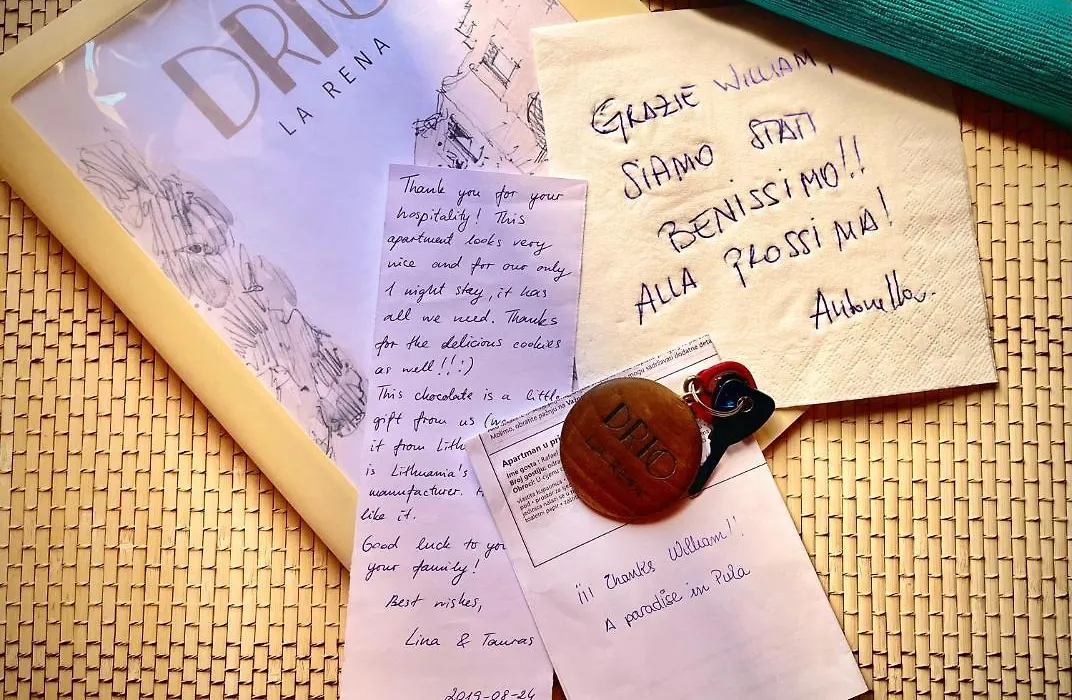 DRIO
LA RENA
Thank you for your
hospitality! This
apartment looks very
nice and for our only
1 night stay, it has
all we need. Thanks
for the delicious cookies
as well!!! :)
This chocolate is a little
gift from us
it from
is Lithuania's
manufacturer.
like it.
Good luck to you
your family!
Best wishes,
Lina & Tauras
2019-08-24
GRAZIE WILLIAM,
SIAMO STATI
BENISSIMO!!
ALLA PROSSIMA!
Antonella.
mogu sadržavati dodatne
Molimo, obratite pažnju na
Apartman u
Ime gosta: Rafael
Broj gostiju:
Obroci: U cijenu
DRIO
¡¡¡ Thanks William!!
A paradise in Pula